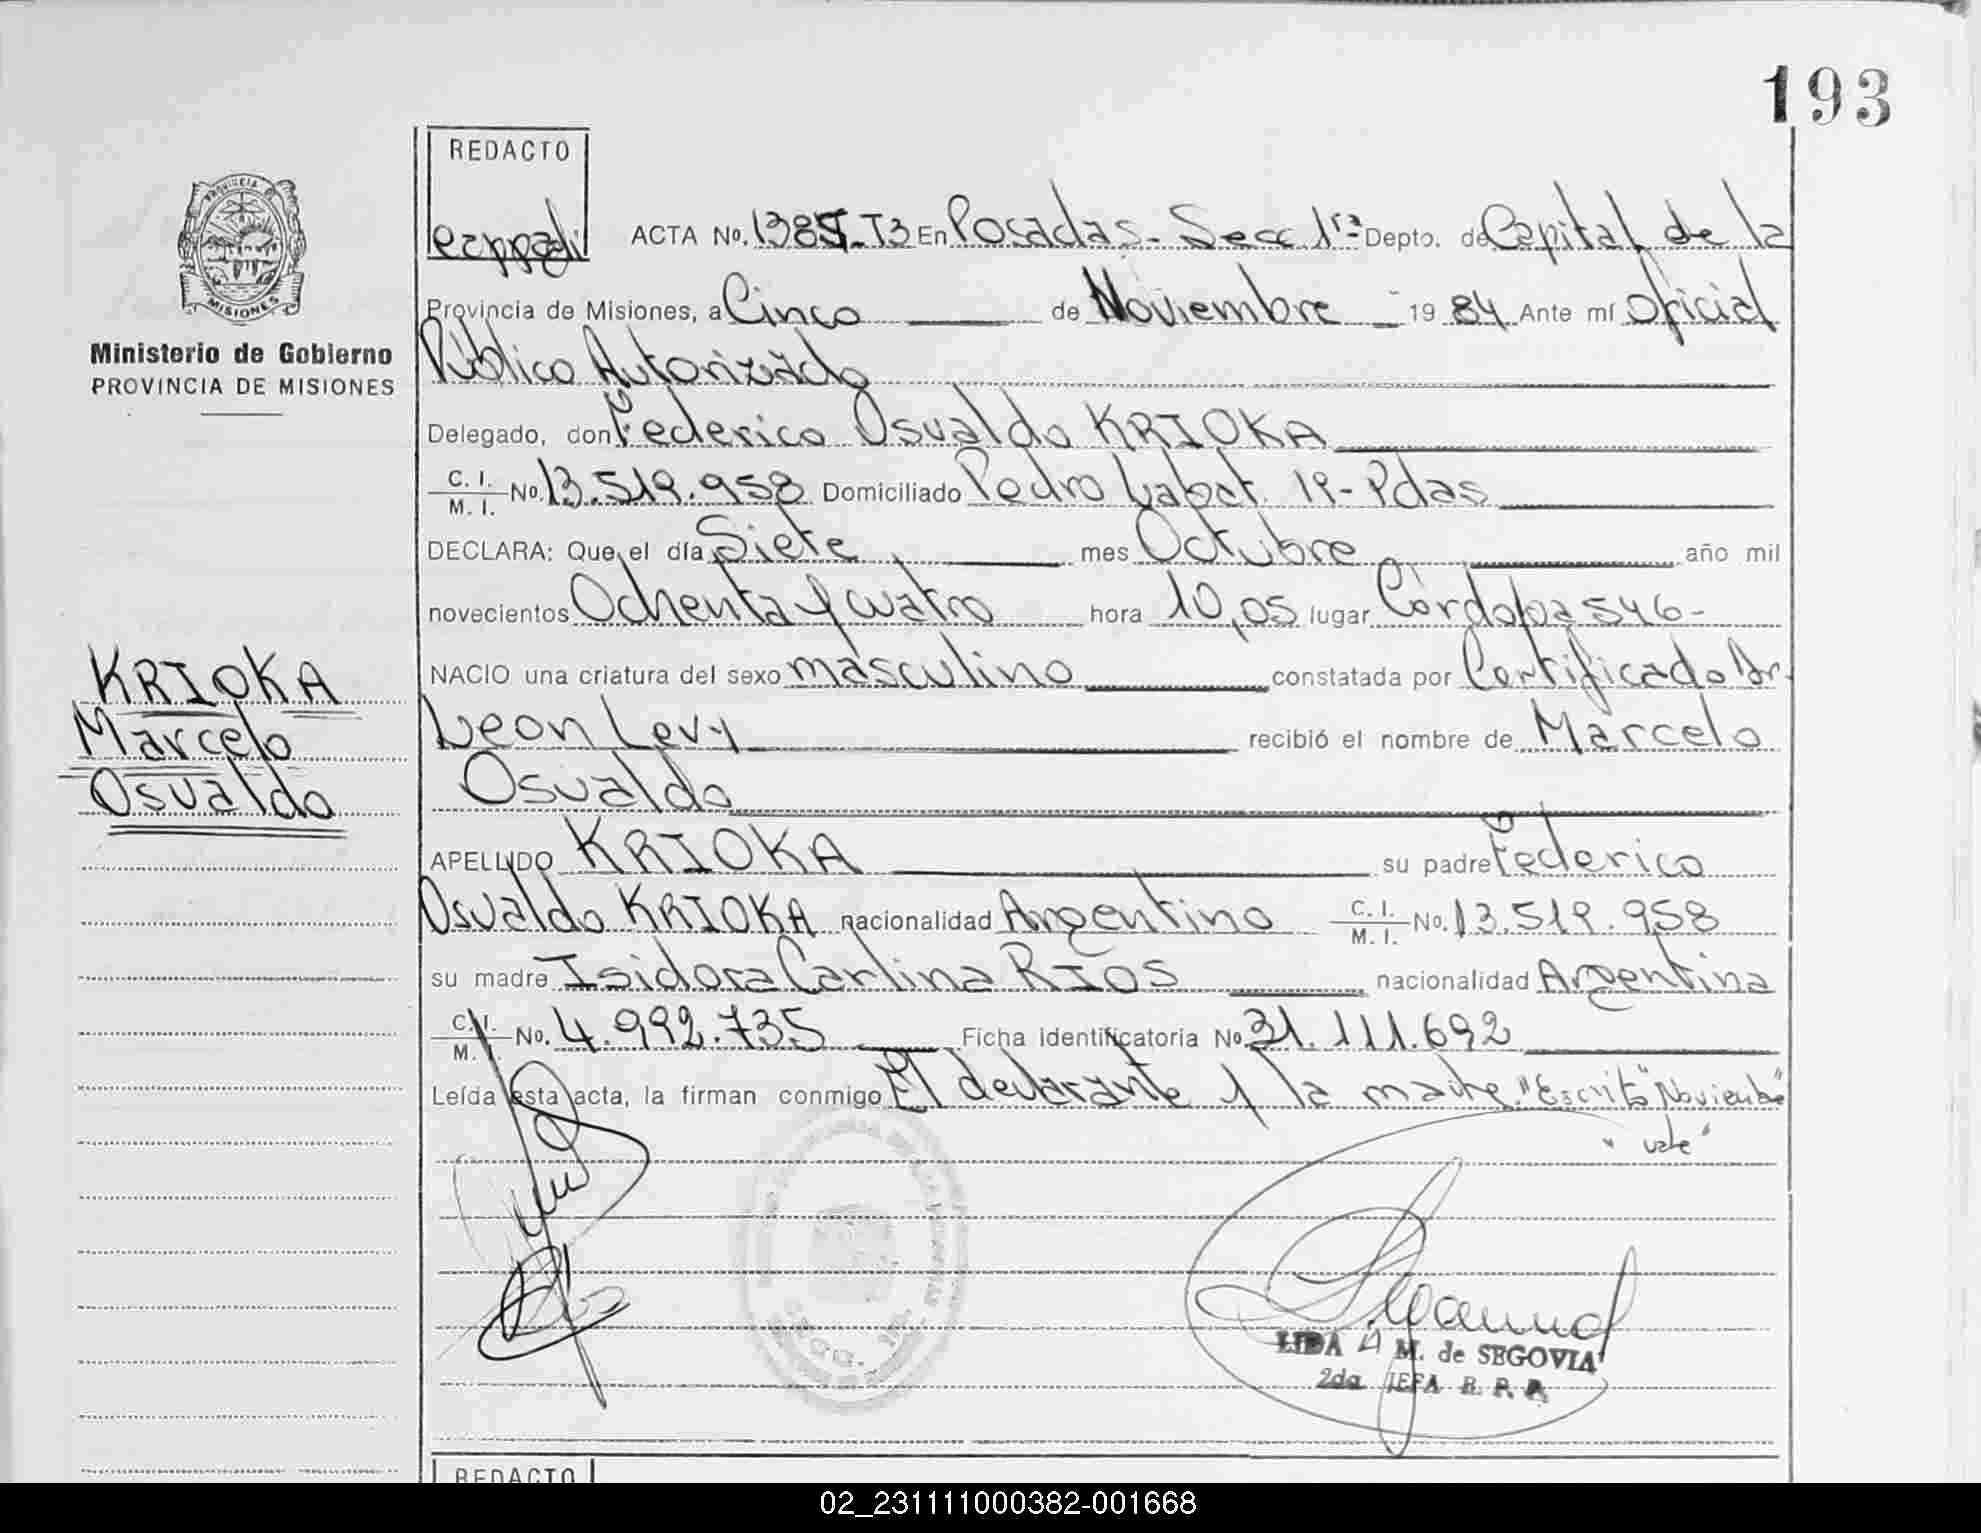 193
REDACTO
ACTA No. 1385-T3 En Posadas - Secc 1ra Depto. de Capital de la
PROVINCIA DE
MISIONES
Provincia de Misiones, a Cinco de Noviembre 19 84 Ante mí Oficial
Ministerio de Gobierno
PROVINCIA DE MISIONES
Público Autorizado
Delegado, don Federico Osvaldo KRIOKA
C. I. M. I. No. 13.519.958 Domiciliado Pedro Labat 19 - Pdas
DECLARA: Que el día Siete mes Octubre año mil
novecientos Ochenta y cuatro hora 10,05 lugar Córdoba 546-
NACIO una criatura del sexo masculino constatada por Certificado Dr.
KRIOKA
Marcelo
Osvaldo
Leon Levy recibió el nombre de Marcelo
Osvaldo
APELLIDO KRIOKA su padre Federico
Osvaldo KRIOKA nacionalidad Argentino C. I. M. I. No. 13.519.958
su madre Isidora Carlina RIOS nacionalidad Argentina
C. I. M. I. No. 4.992.735 Ficha identificatoria No 31.111.692
Leída esta acta, la firman conmigo El declarante y la madre. "Escrito" Noviembre"
"vale"
LIDA A M. de SEGOVIA
2da JEFA R. P. P.
REDACTO
02_231111000382-001668